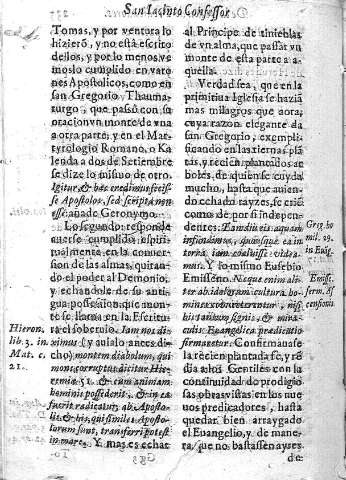 San Iacinto Confessor
Tomas, y por ventura lo
hizierõ, y no está escrito
dellos, y por lo menos, ve
mos lo cumplido en varo
nes Apostolicos, como en
san Gregorio Thauma
turgo, que passò con su
oracion vn monte de vna
a otra parte, y en el Mar-
tyrologio Romano, o Ka
lenda a dos de Setiembre
se dize lo mismo de otro.
Igitur, & hæc credimus fecis-
se Apostolos, sed scripta non
esse: añade Geronymo.
Lo segundo responde
auerse cumplido espiri-
tualmente en la conuer-
sion de las almas, quitan-
do el poder al Demonio,
y echandole de su anti-
gua possession, que a monte
se llama en la Escritu
ra el soberuio. Iam nos di-
ximus (y aulalo antes di-
cho) montem diabolum, qui
mons corruptus dicitur Hie-
remiæ 51. & cum animam
hominis possederit, & in ea
fuerit radicatus, ab Aposto-
lis, & his, qui similes Aposto-
lorum sunt, transferri potest
in mare. Y mas es echar
Hieron.
lib. 3. in
Mat. c.
21.
al Principe de tinieblas
de vn alma, que passar vn
monte de esta parte a a-
quella.
Verdad sea, que en la
primitiua Iglesia se hazia
mas milagros que aora,
cuya razon elegante da
san Gregorio, exempli-
ficando en las tiernas plã
tas, y recien plantados ar
boles, de quien se cuyda
mucho, hasta que auien-
do echado rayzes, se cria
como de por si indepen-
dentes: Tandiu eis aquam
infundimus, quousque ea in
terra iam coaluisse videa-
mus. Y lo mismo Eusebio
Emisseno. Neque enim ali-
ter ab idolorum cultura ho-
mines conuerterentur, nisi
his tantum signis, & mira-
culis Euangelica prædicatio
firmaretur. Confirmauase
la recien plantada fe, y re
dia a los Gentiles con la
continuidad de prodigio
sas obras vistas en los nue
uos predicadores, hasta
quedar bien arraygado
el Euangelio, y de mane-
ra, que no bastassen ayres
Greg. ho
mil. 29.
in Euãg.
Emiss.
serm. de